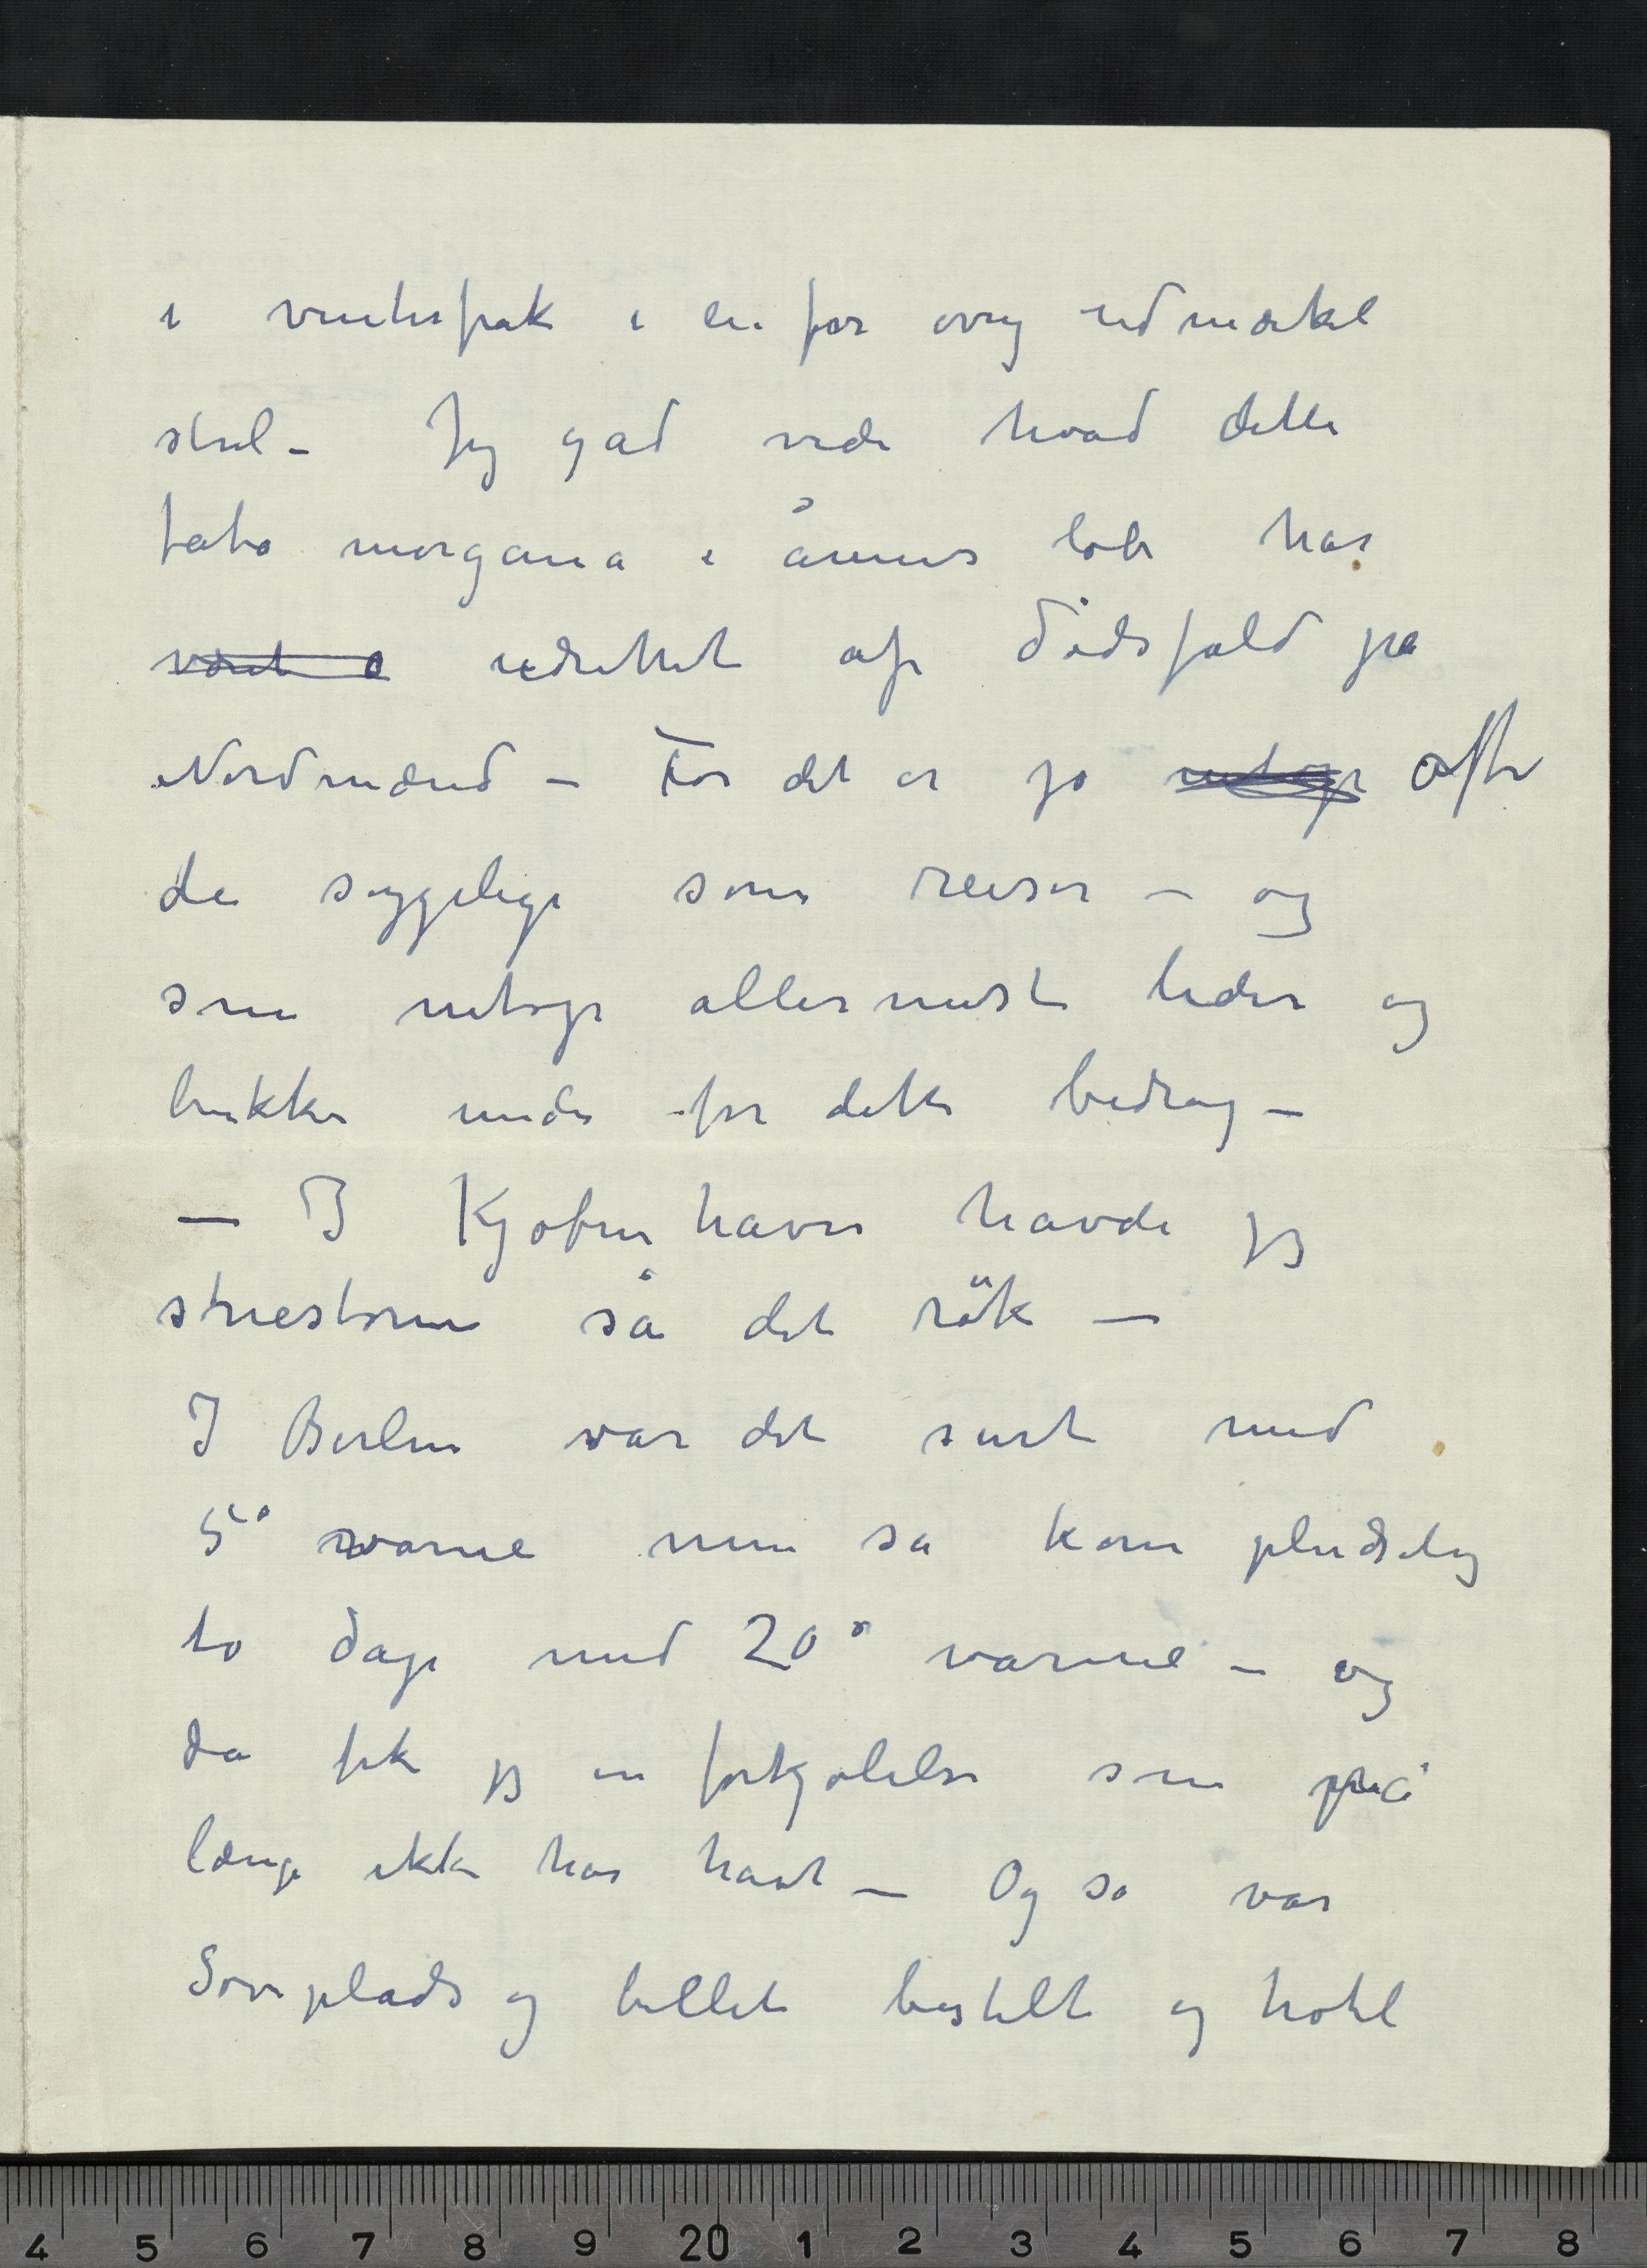 i vinterfrak i en for øvrig udmærket
stil – Jeg gad vide hvad dette
fata morgana i årenes løb har
været a udrettet af dødsfald på
Nordmænd – For det er jo netop ofte
de sygelige som reiser – og
som netop allermest lider og
bukker under for dette bedrag –
– I Kjøbenhavn havde jeg
snestorm så det røk –
I Berlin var det surt med
5° varme men så kom pludselig
to dage med 20° varme – og
da fik jeg en forkjølelse som på
længe ikke har havt – Og så var
Soveplads og billet bestilt og hotel
4 5 6 7 8 9 20 1 2 3 4 5 6 7 8